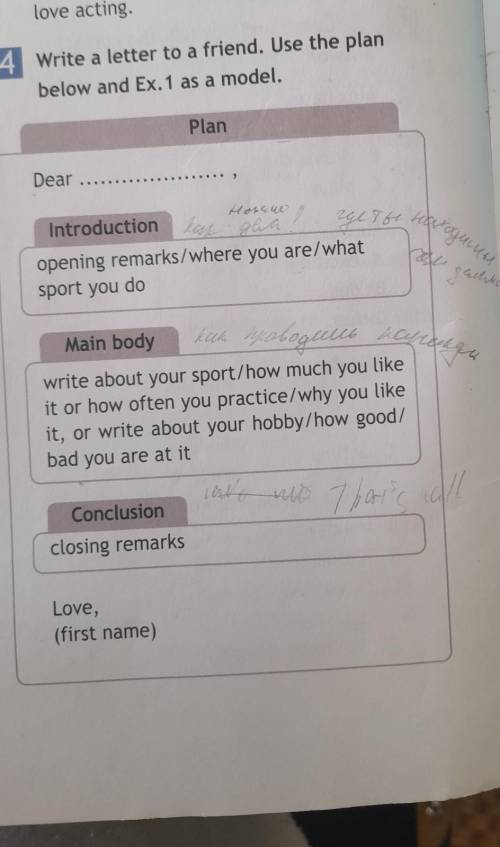 love acting.
4 Write a letter to a friend. Use the plan
below and Ex.1 as a model.
Plan
Dear ......................,
Introduction как дела! где ты находишься
opening remarks/where you are/what
sport you do
Main body как проводишь
write about your sport/how much you like
it or how often you practice/why you like
it, or write about your hobby/how good/
bad you are at it
Conclusion That's all
closing remarks
Love,
(first name)